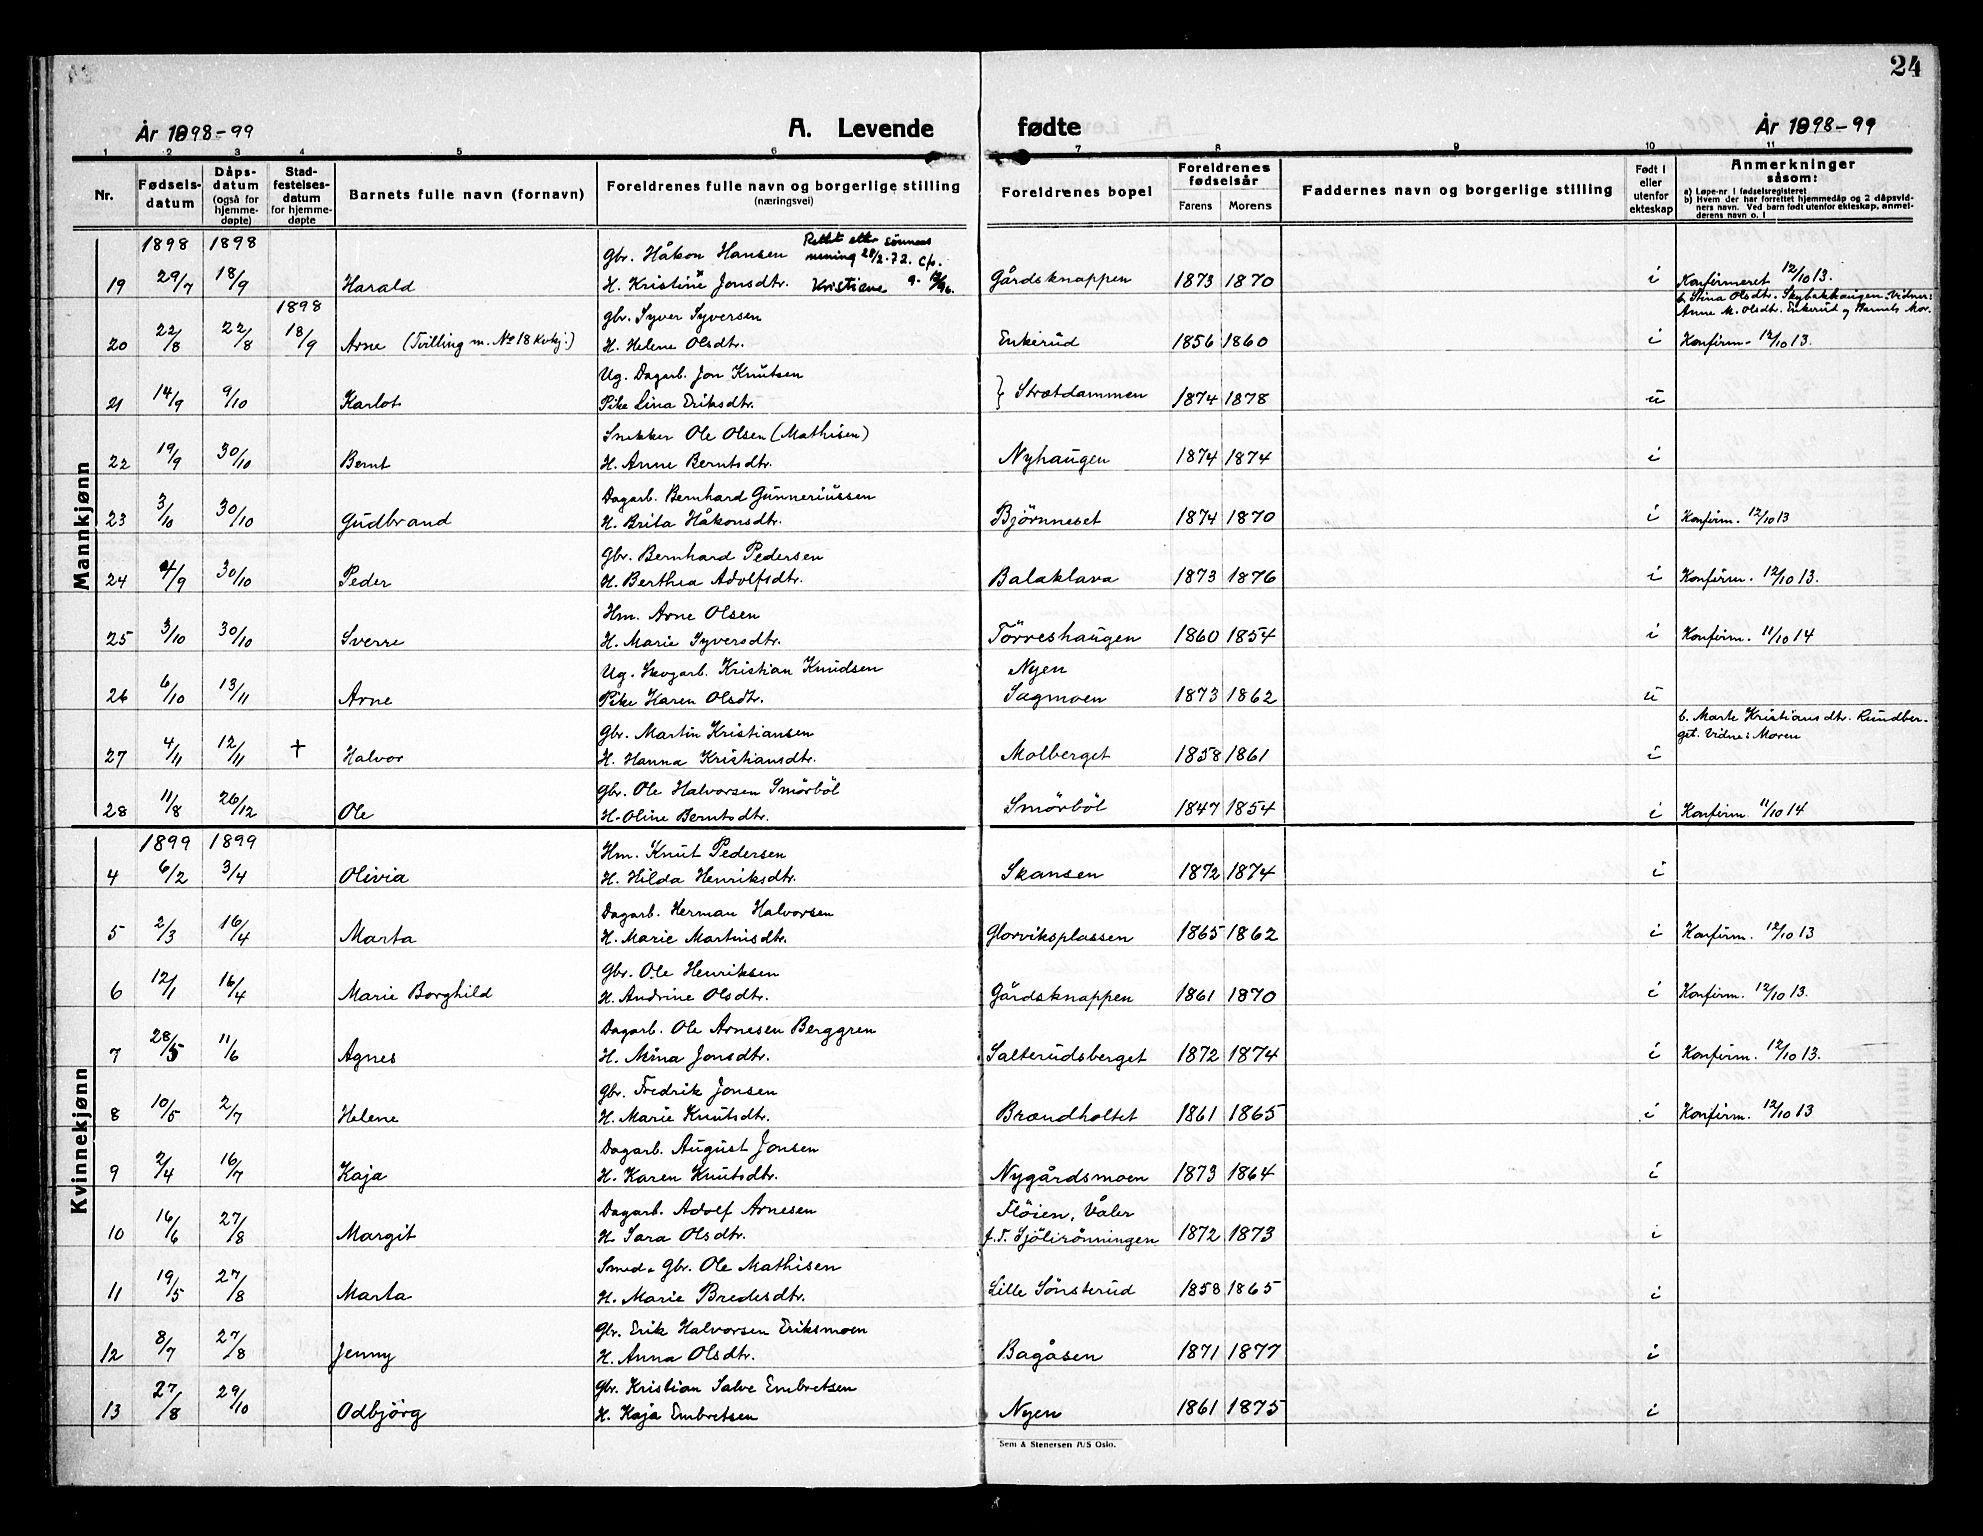 24
År 1898-99 A. Levende fødte År 1898-99
1 2 3 4 5 6 7 8 9 10 11
Nr. Fødselsdatum Dåpsdatum (også for hjemmedøpte) Stadfestelsesdatum for hjemmedøpte Barnets fulle navn (fornavn) Foreldrenes fulle navn og borgerlige stilling (næringsvei) Foreldrenes bopel Foreldrenes fødselsår Farens Morens Faddernes navn og borgerlige stilling Født i eller utenfor ekteskap Anmerkninger såsom:
a) Løpe-nr i fødselsregisteret
b) Hvem der har forrettet hjemmedåp og 2 dåpsvidners navn. Ved barn født utenfor ekteskap, anmelderens navn o. l
Mannkjønn
1898 1898 Gbr. Håkon Hansen Rettet etter sønnens
mening 28/2-72.
19 29/7 18/9 Harald H. Kristine Jonsdtr. Kristiane Gårdsknappen 1873 1870 i Konfirmeret 12/10 13.
1898 Gbr. Syver Syversen b. Stina Olsdtr. Skybakhaugen. Vidner:
Anne M. Olsdtr. Enkerud og Barnets Mor.
20 22/8 22/8 18/9 Arne (Tvilling m. No 18 Kvkj.) H. Helene Olsdtr. Enkerud 1856 1860 i Konfirm- 12/10 13.
Ug. Dagarb. Jon Knutsen
21 14/9 9/10 Karlot Pike Lina Eriksdtr. } Strætdammen 1874 1878 u
Snekker Ole Olsen (Mathisen)
22 19/9 30/10 Bernt H. Anne Berntsdtr. Nyhaugen 1874 1874 i
Dagarb. Bernhard Gunneriussen
23 3/10 30/10 Gudbrand H. Brita Håkonsdtr. Björnneset 1874 1870 i Konfirm. 12/10 13
Gbr. Bernhard Pedersen
24 4/9 30/10 Peder H. Berthea Adolfsdtr. Balaklava 1873 1876 i Konfirm. 12/10 13.
Hm. Arne Olsen
25 3/10 30/10 Sverre H. Marie Syversdtr. Törreshaugen 1860 1854 i Konfirm. 11/10 14
Ug. Skogarb. Kristian Knudsen Nyen
26 6/10 13/11 Arne Pike Karen Olsdtr. Sagmoen 1873 1862 u
Gbr. Martin Kristiansen b. Marte Kristiansdtr. Rundberget. Vidne: Moren
27 4/11 12/11 † Halvor H. Hanna Kristiansdtr. Molberget 1858 1861 i
Gbr. Ole Halvorsen Smörböl
28 11/8 26/12 Ole H. Oline Berntsdtr. Smörböl 1847 1854 i Konfirm 11/10 14
Kvinnekjønn
1899 1899 Hm. Knut Pedersen
4 6/2 3/4 Olivia H. Hilda Henriksdtr. Skansen 1872 1874 i
Dagarb. Herman Halvorsen
5 2/3 16/4 Marta H. Marie Martinsdtr. Glorviksplassen 1865 1862 i Konfirm. 12/10 13
Gbr. Ole Henriksen
6 12/1 16/4 Marie Borghild H. Andrine Olsdtr. Gårdsknappen 1861 1870 i Konfirm. 12/10 13.
Dagarb. Ole Arnesen Berggren
7 28/5 11/6 Agnes H. Mina Jonsdtr. Salterudsberget 1872 1874 i Konfirm. 12/10 13.
Gbr. Fredrik Jonsen
8 10/5 2/7 Helene H. Marie Knutsdtr. Brændholtet 1861 1865 i Konfirm. 12/10 13
Dagarb. August Jonsen
9 2/4 16/7 Kaja H. Karen Knutsdtr. Nygårdsmoen 1873 1864 i
Dagarb. Adolf Arnesen Flöien, Våler
10 16/6 27/8 Margit H. Sara Olsdtr. f. T. Sjölirönningen 1872 1873 i
Smed. Gbr. Ole Mathisen
11 19/5 27/8 Marta H. Marie Bredesdtr. Lille Sönsterud 1858 1865 i
Gbr. Erik Halvorsen Eriksmoen
12 8/7 27/8 Jenny H. Anna Olsdtr. Bagåsen 1871 1877 i
Gbr. Kristian Salve Embretsen
13 27/8 29/10 Odbjörg H. Kaja Embretsen Nyen 1861 1875 i
Sem & Stenersen A/S Oslo.